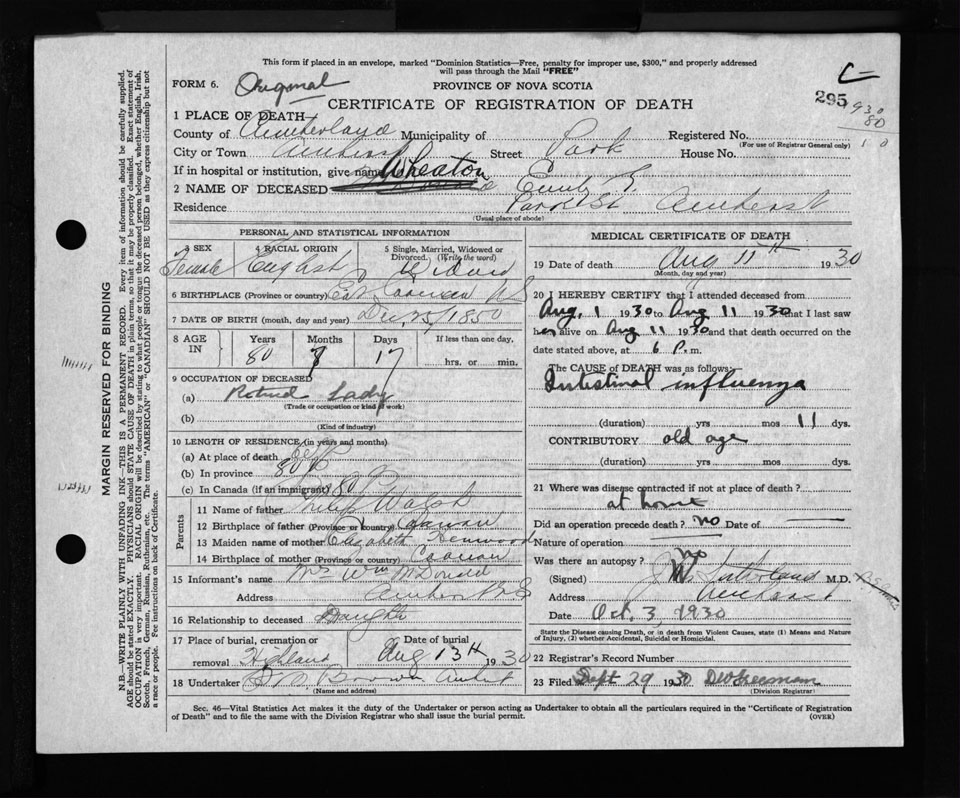 This form if placed in an envelope, marked "Dominion Statistics—Free, penalty for improper use, $300," and properly addressed
will pass through the Mail "FREE"
FORM 6. Original
PROVINCE OF NOVA SCOTIA
CERTIFICATE OF REGISTRATION OF DEATH
295
930
80
1 PLACE OF DEATH
County of Cumberland Municipality of Registered No.
(For use of Registrar General only)
City or Town Amherst Street Park House No.
If in hospital or institution, give name
2 NAME OF DECEASED Wheaton Emily E
Residence Park St Amherst
(Usual place of abode)
PERSONAL AND STATISTICAL INFORMATION
3 SEX 4 RACIAL ORIGIN 5 Single, Married, Widowed or Divorced. (Write the word)
Female English Widow
6 BIRTHPLACE (Province or country) N S
7 DATE OF BIRTH (month, day and year) Dec, 25/1850
8 AGE IN Years Months Days If less than one day,
80 17 hrs. or min.
9 OCCUPATION OF DECEASED
(a) Retired Lady
(Trade or occupation or kind of work)
(b)
(Kind of industry)
10 LENGTH OF RESIDENCE (in years and months)
(a) At place of death
(b) In province 80
(c) In Canada (if an immigrant) 80
Parents
11 Name of father Philip Walsh
12 Birthplace of father (Province or country)
13 Maiden name of mother Elizabeth Henwood
14 Birthplace of mother (Province or country)
15 Informant's name Mrs Wm McDonald
Address Amherst N S
16 Relationship to deceased Daughter
17 Place of burial, cremation or removal Highland Date of burial Aug 13th 1930
18 Undertaker Brown Amherst
(Name and address)
MEDICAL CERTIFICATE OF DEATH
19 Date of death Aug 11th 1930
(Month, day and year)
20 I HEREBY CERTIFY that I attended deceased from
Aug. 1 1930 to Aug 11 1930 that I last saw
her alive on Aug 11 1930 and that death occurred on
date stated above, at 6 P. m.
The CAUSE of DEATH was as follows:
Intestinal influenza
(duration) yrs mos 11 dys.
CONTRIBUTORY old age
(duration) yrs. mos. dys.
21 Where was disease contracted if not at place of death?
at home
Did an operation precede death? no Date of
Nature of operation
Was there an autopsy? no
(Signed) Sutherland M.D.
Address Amherst
Date Oct. 3, 1930
State the Disease causing Death, or in death from Violent Causes, state (1) Means and Nature of Injury, (2) whether Accidental, Suicidal or Homicidal.
22 Registrar's Record Number
23 Filed Sept 29 1930 Freeman
(Division Registrar)
Sec. 46—Vital Statistics Act makes it the duty of the Undertaker or person acting as Undertaker to obtain all the particulars required in the "Certificate of Registration
of Death" and to file the same with the Division Registrar who shall issue the burial permit.
(OVER)
MARGIN RESERVED FOR BINDING
N.B.—WRITE PLAINLY WITH UNFADING INK—THIS IS A PERMANENT RECORD. Every item of information should be carefully supplied.
AGE should be stated EXACTLY. PHYSICIANS should STATE CAUSE OF DEATH in plain terms, so that it may be properly classified. Exact statement of
OCCUPATION is very important. RACIAL ORIGIN will be described by stating to what people or tongue the deceased person belonged, whether English, Irish,
Scotch, French, German, Russian, Ruthenian, etc. The terms "AMERICAN" or "CANADIAN" SHOULD NOT BE USED as they express citizenship but not
a race or people. Fee instructions on back of Certificate.